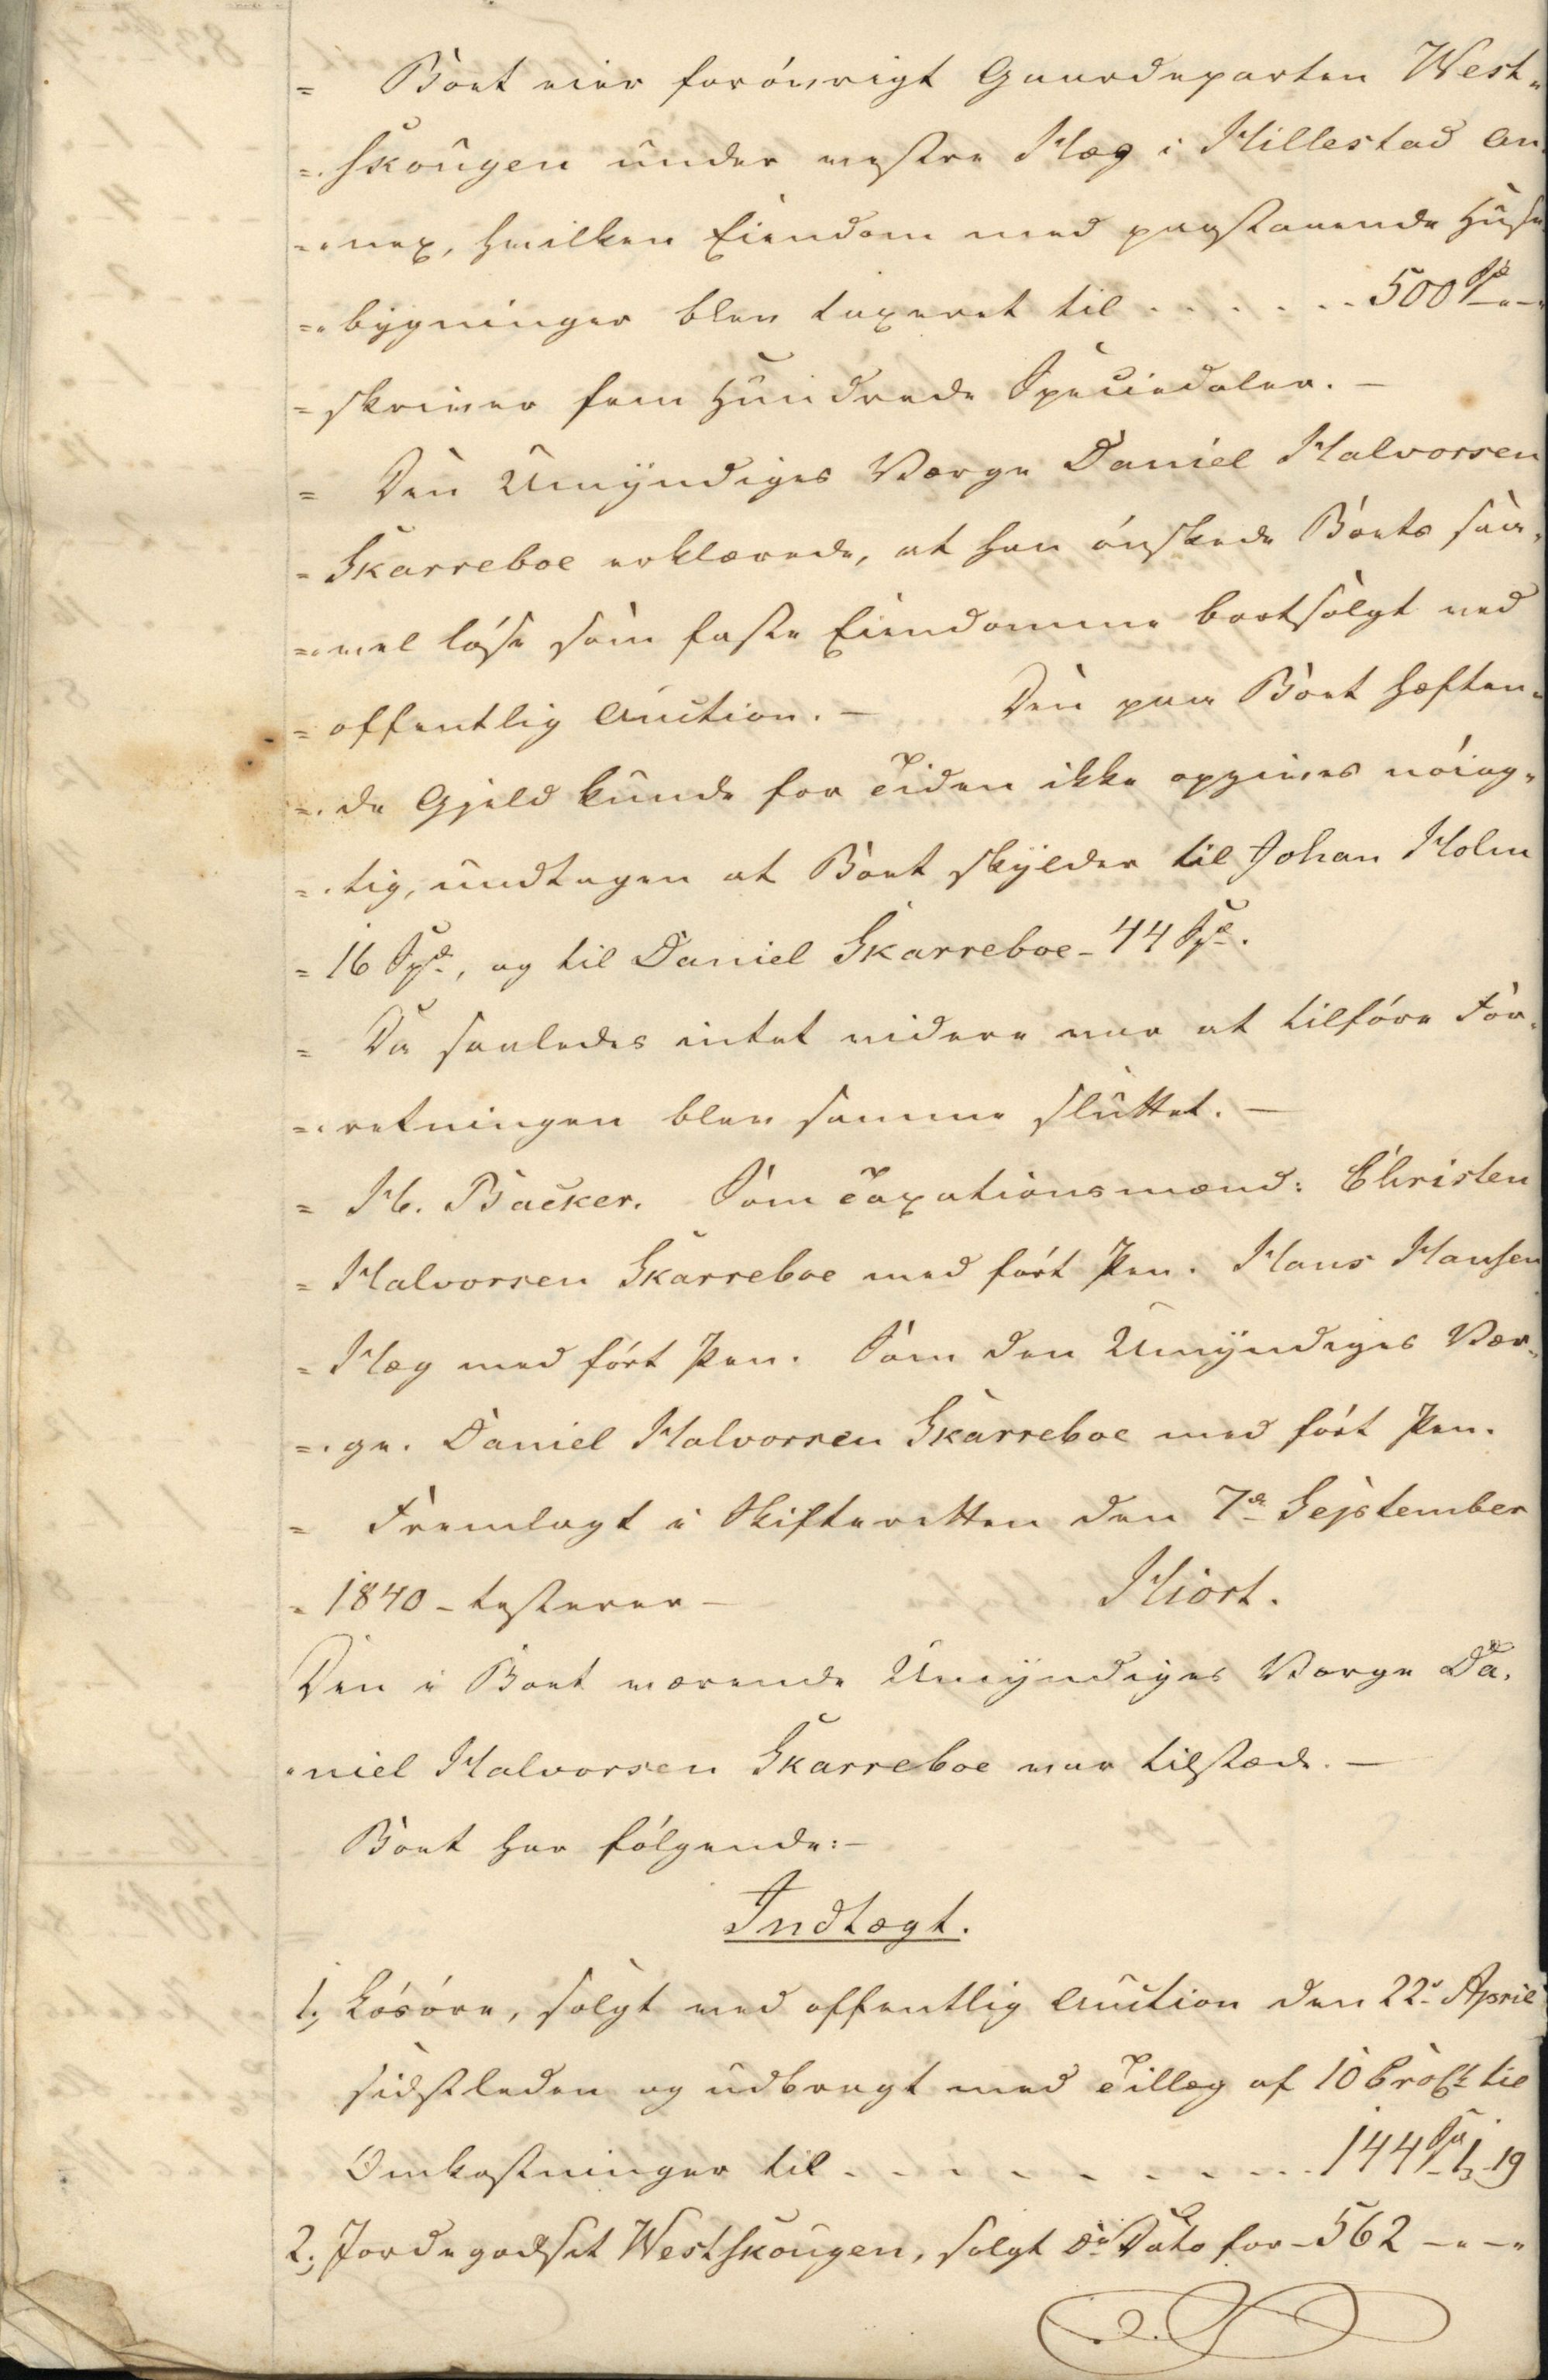 = Boet eier forövrigt Gaardeparten West-
=. skougen under westre Hæg i Hillestad An-
=. nex, hvilken Eiendom med paastaaende Huse
=. bygninger blev taxeret til . . . . . . 500 Spd - " - "
= skriver fem Hundrede Speciedaler. —
= Den Umyndiges Værge Daniel Halvorsen
= Skarreboe erklærede, at han önskede Boets saa-
=. vel löse som faste Eiendomme bortsolgt ved
= offentlig Auction. — Den paa Boet hæften-
=. de Gjeld kunde for Tiden ikke opgives nöiag-
=. tig, undtagen at Boet skylder til Johan Holm
= 16 Spd., og til Daniel Skarreboe - 44 Spd.
= Da saaledes intet videre var at tilföre For-
=. retningen blev samme sluttet. —
= H. Backer. Som Taxationsmænd: Christen
= Halvorsen Skarreboe med fört Pen. Hans Hansen
= Hæg med fört Pen. Som den Umyndiges Vær-
=. ge. Daniel Halvorsen Skarreboe med fört Pen.
= Fremlagt i Skifteretten den 7de September
= 1840 - testerer — Hiort.
Den i Boet værende Umyndiges Værge Da-
"niel Halvorsen Skarreboe var tilstæde. —
Boet har fölgende: —
Indtægt.
1, Lösöre, solgt ved offentlig Auction den 22de April
sidstleden og udbragt med Tillæg af 10 Procst til
Omkostninger til . . . . . . . . 144 Spd 1 19
2, Jordegodset Westskougen, solgt Do Dato for - 562 - " - "